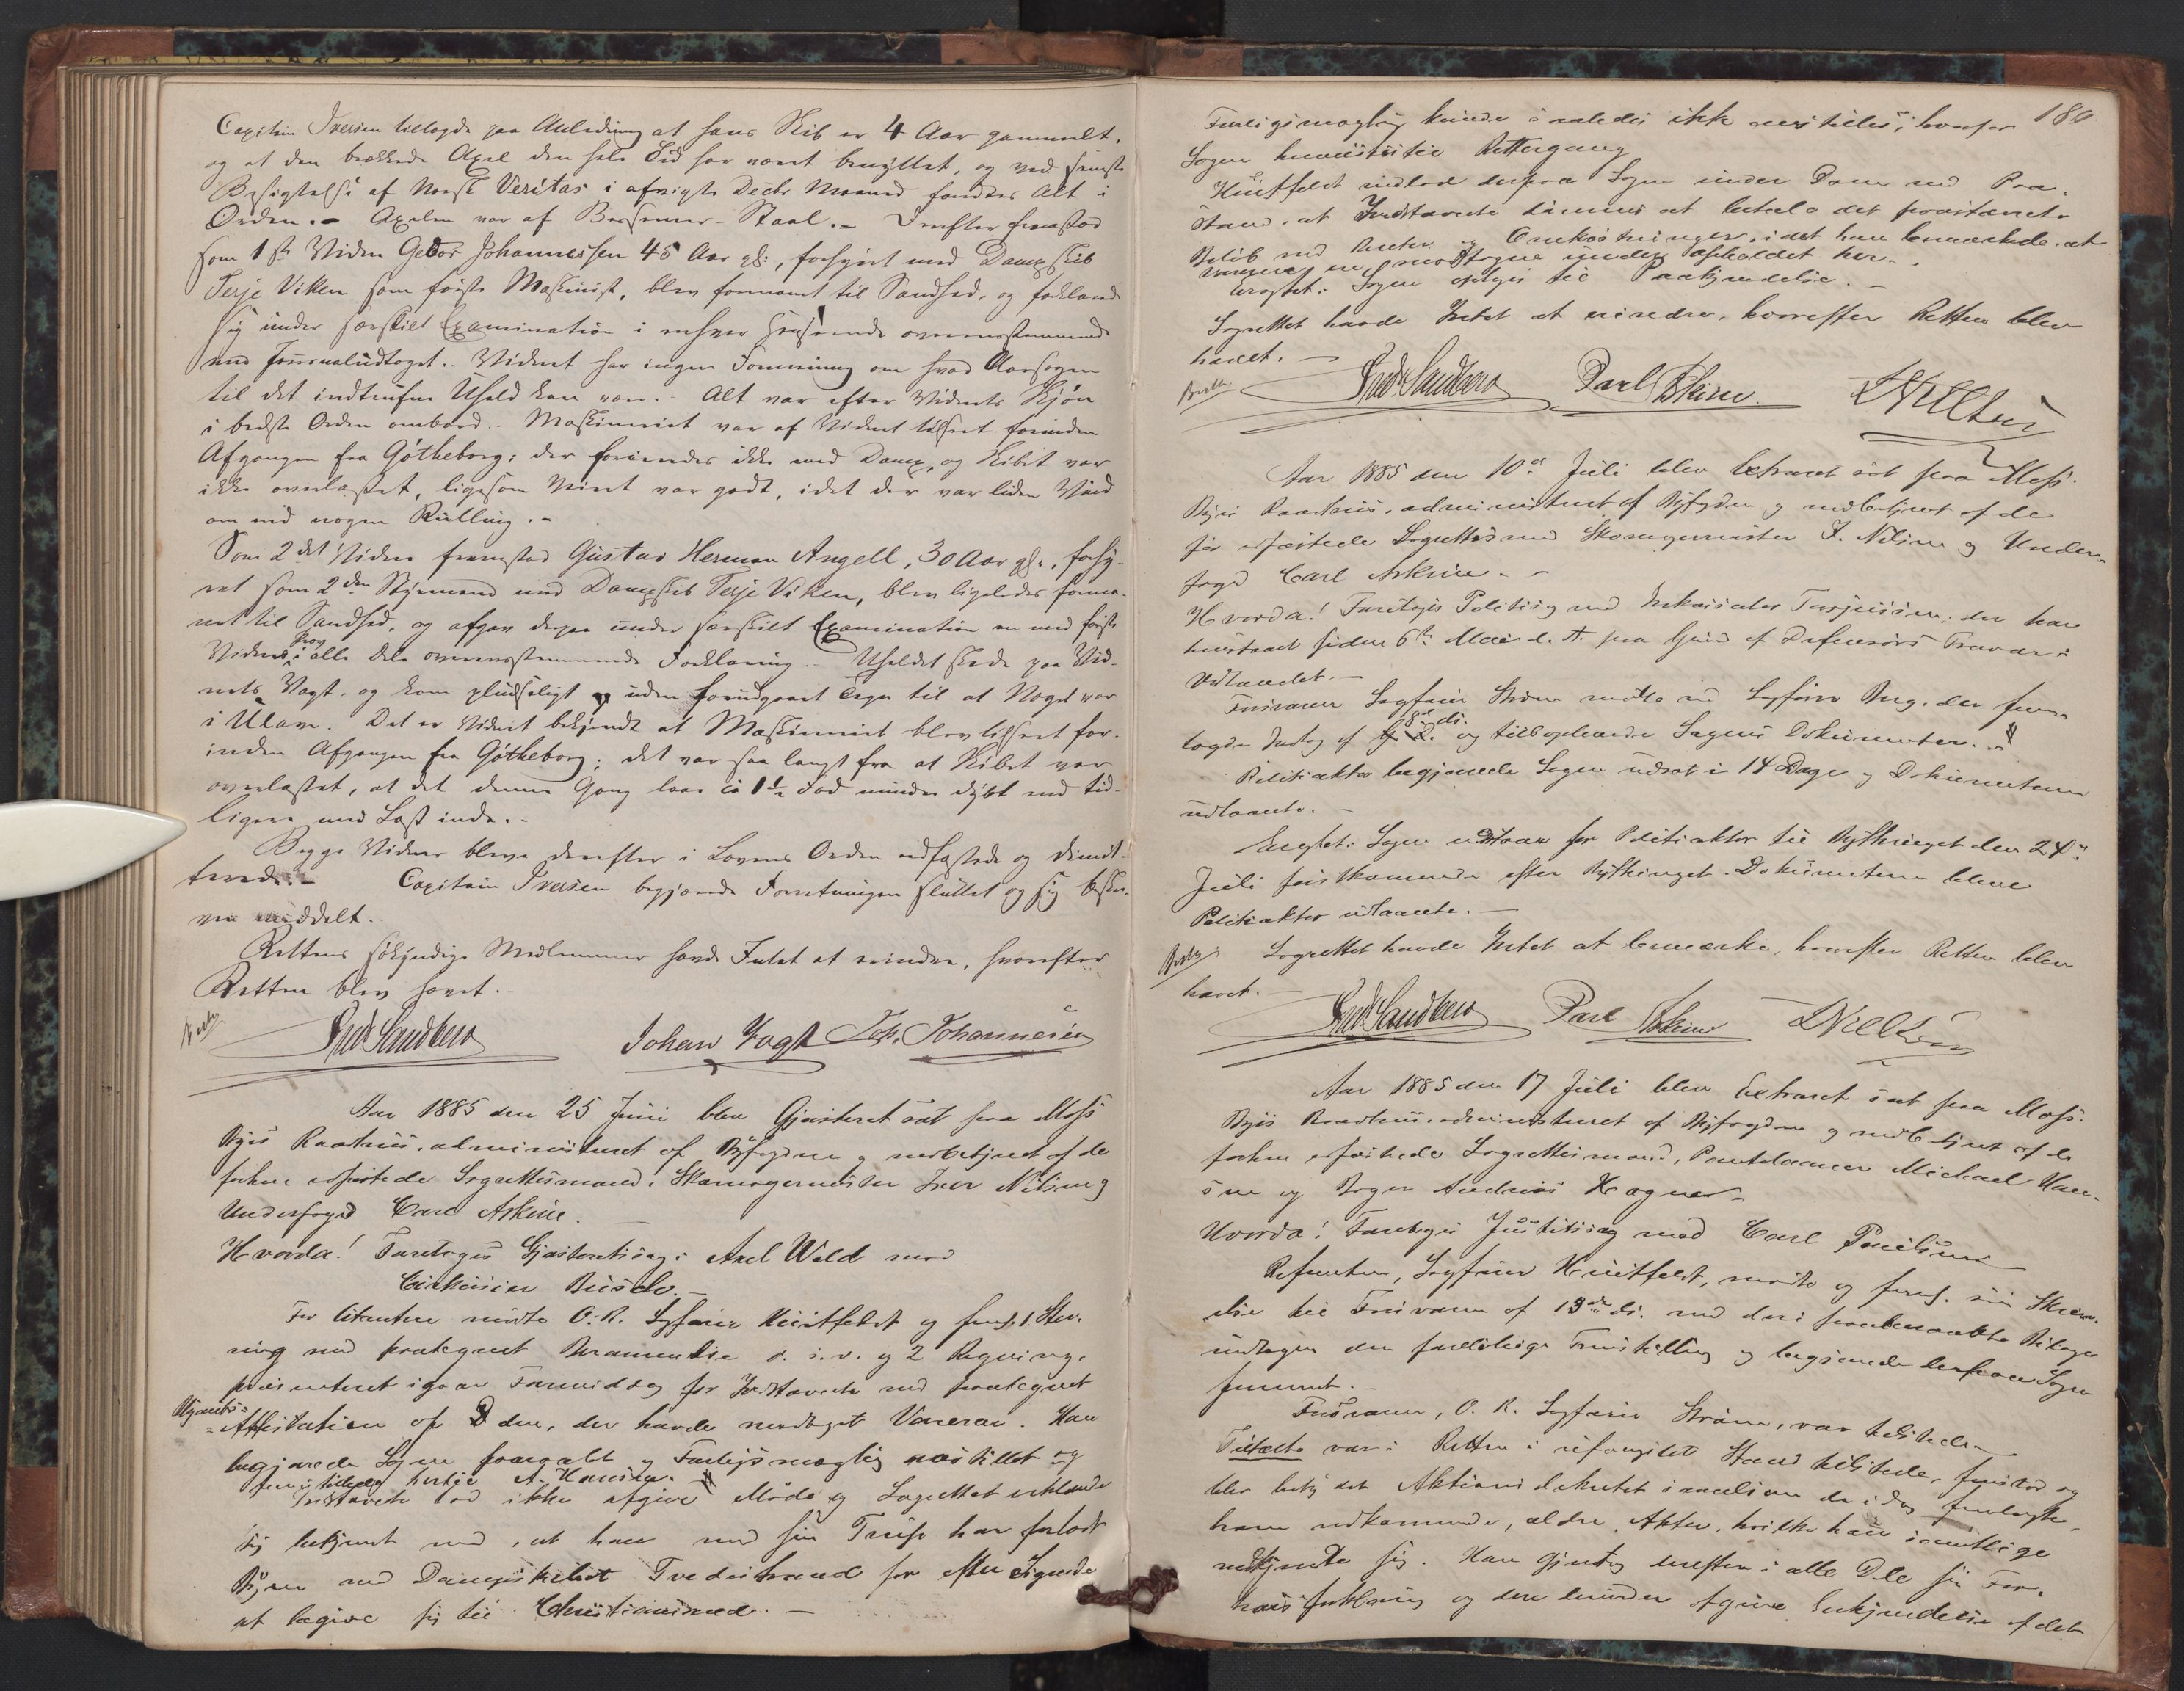 Capitain Iversen tillagde paa Anledning at hans Skib er 4 Aar gammelt,
og at den brækkede Axel den hele Tid har været benyttet, og ved seneste
Besigtelse af Norsk Veritas i afvigte Decbr Maaned fandtes Alt i
Orden. – Axelen var af Bessemer-Staal. – Derefter fremstod
som 1ste Vidne Johannessen 45 Aar gl:, forhyret med Dampskib
Terje Viken som første Maskinist, blev formanet til Sandhed, og forklarede
sig under særskilt Examination i enhver Henseende overensstemmende
med Journaludtoget. Vidnet har ingen Formening om hvad Aarsagen
til det indtrufne Uheld kan være. – Alt var efter Vidnets Skjøn
i bedste Orden ombord. Maskineriet var af Vidnet tilseet forinden
Afgangen fra Götheborg; der foreendes ikke med Damp, og Skibet var
ikke overlastet, ligesom Veiret var godt, idet der var liden Vind
om end nogen Rulling. –
Som 2det Vidne fremstod Gustav Herman Angell, 30 Aar gl:, forhy-
ret som 2den Styrmand med Dampskib Terje Viken, blev ligeledes forma-
net til Sandhed, og afgav derpaa under særskilt Examination en med første
Vidnes Prov i alle Dele overensstemmende Forklaring. – Uheldet skede paa Vid-
nets Vagt, og kom pludseligt og uden forudgaaet Tegn til at Noget var
i Ulave. Det er Vidnet bekjendt at Maskineriet blev tilseet for-
inden Afgangen fra Götheborg; det var saa langt fra at Skibet var
overlastet, at det denne Gang laae ca 1½ Fod mindre dybt end tid-
ligere med Last inde. –
Begge Vidner bleve derefter i Lovens Orden edfæstede og dimit-
terede. – Capitain Iversen begjærede Forretningen sluttet og sig beskre-
ven meddelt.
Rettens søkyndige Medlemmer havde Intet at erindre, hvorefter
Retten blev hævet. –
Fred Sandberg Johan Vogt Joh. Johannesen
Aar 1885 den 25 Juni blev Gjæsteret sat paa Moss
Byes Raadhus, administreret af Byfogden og medbetjent af de
forhen edfæstede Lagrettesmænd, Skomagermester Iver Nilsen og
Underfoged Carl Askim.
Hvorda! Foretoges Gjæsteretssag: Axel Wold mod
Cirkusier Busch.
For Citanten mødte O.R. Sagfører Huitfeldt og freml. 1. Stev-
ning med paategnet Berammelse o. s. v. og 2 Regning,
præsenteret igaar Formiddag for Indstævnte med paategnet
Attestation af Dden, der havde modtaget Varerne. Han
begjærede Sagen foretaget og Forligsmægling anstillet og
fremstillede hertil A. Hansen.
Indstævnte lod ikke afgive Møde og Lagrettet erklærede
sig bekjendt med, at han med sin Trup har forladt
Byen med Dampskibet Tvedestrand for efter Sigende
at begive sig til Christianssand. –
180
Forligsmægling kunde saaledes ikke anstilles, hvorfor
Sagen henvistes til Rettergang
Huitfeldt indlod derpaa Sagen under Dom med Paa-
stand, at Indstævnte dømmes at betale det paastævnte
Beløb med Renter og Omkostninger, idet han bemærkede, at
Varerne ere modtagne under Opholdet her. –
Eragtet: Sagen optages til Paakjendelse. –
Lagrettet havde Intet at erindre, hvorefter Retten blev
hævet. –
Fred Sandberg Carl Askim I Nilsen
Aar 1885 den 10de Juli blev Extraret sat paa Moss
Byes Raadhus, administreret af Byfogden og medbetjent af de
før edfæstede Lagrettesmænd Skomagermester I. Nilsen og Under-
foged Carl Askim. –
Hvorda! Foretoges Politisag mod Inkassator Torjussen, der har
henstaaet siden 6te Mai d. A. paa Grund af Defensors Fravær i
Udlandet. –
Forsvarer Sagfører Strøm mødte ved Sagfører Bug, der frem-
lagde Indlæg af 8de ds. og tilbageleverede Sagens Dokumenter.
Politiaktor begjærede Sagen udsat i 14 Dage og Dokumenterne
udlaante. –
Eragtet: Sagen udstaar for Politiaktor til Bythinget den 24de
Juli førstkommende efter Bythinget. Dokumenterne bleve
Politiaktor udlaante. –
Lagrettet havde Intet at bemærke, hvorefter Retten blev
hævet. –
Fred Sandberg Carl Askim I Nilsen
Aar 1885 den 17 Juli blev Extraret sat paa Moss
Byes Raadhus, administreret af Byfogden og medbetjent af de
forhen edfæstede Lagrettesmænd, Pantelaaner Michael Han-
sen og Bager Andreas Wagner –
Hvorda! Foretoges Justitssag mod Carl Paulsen
Referenten, Sagfører Huitfeldt, mødte og freml. sin Skriv-
else til Forsvarer af 13de ds. med deri paaberaabte Bilage
undtagen den foreløbige Fremstilling og begjærede derpaa Sagen
fremmet. –
Forsvarer, O. R. Sagfører Strøm, var tilstede –
Tiltalte var i Retten i ufængslet Stand tilstede, fremstod og
blev betydet Aktionsdekretet samt de idag fremlagte,
ham vedkommende, ældre Akter, hvilke han samtlige
vedkjendte sig. Han gjentog derefter i alle Dele sin For-
hørsforklaring og derunder afgivne Erkjendelse af det